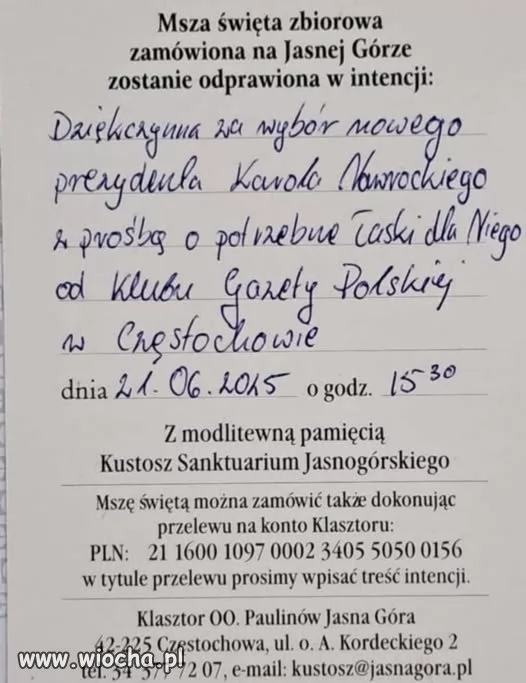 Msza święta zbiorowa
zamówiona na Jasnej Górze
zostanie odprawiona w intencji:
Dziękczynna za wybór nowego
prezydenta Karola Nawrockiego
z prośbą o potrzebne łaski dla Niego
od Klubu Gazety Polskiej
w Częstochowie
dnia 21.06.2025 o godz. 15 30
Z modlitewną pamięcią
Kustosz Sanktuarium Jasnogórskiego
Mszę świętą można zamówić także dokonując
przelewu na konto Klasztoru:
PLN: 21 1600 1097 0002 3405 5050 0156
w tytule przelewu prosimy wpisać treść intencji.
Klasztor OO. Paulinów Jasna Góra
42-225 Częstochowa, ul. o. A. Kordeckiego 2
tel. 34 377 72 07, e-mail: kustosz@jasnagora.pl
www.wiocha.pl